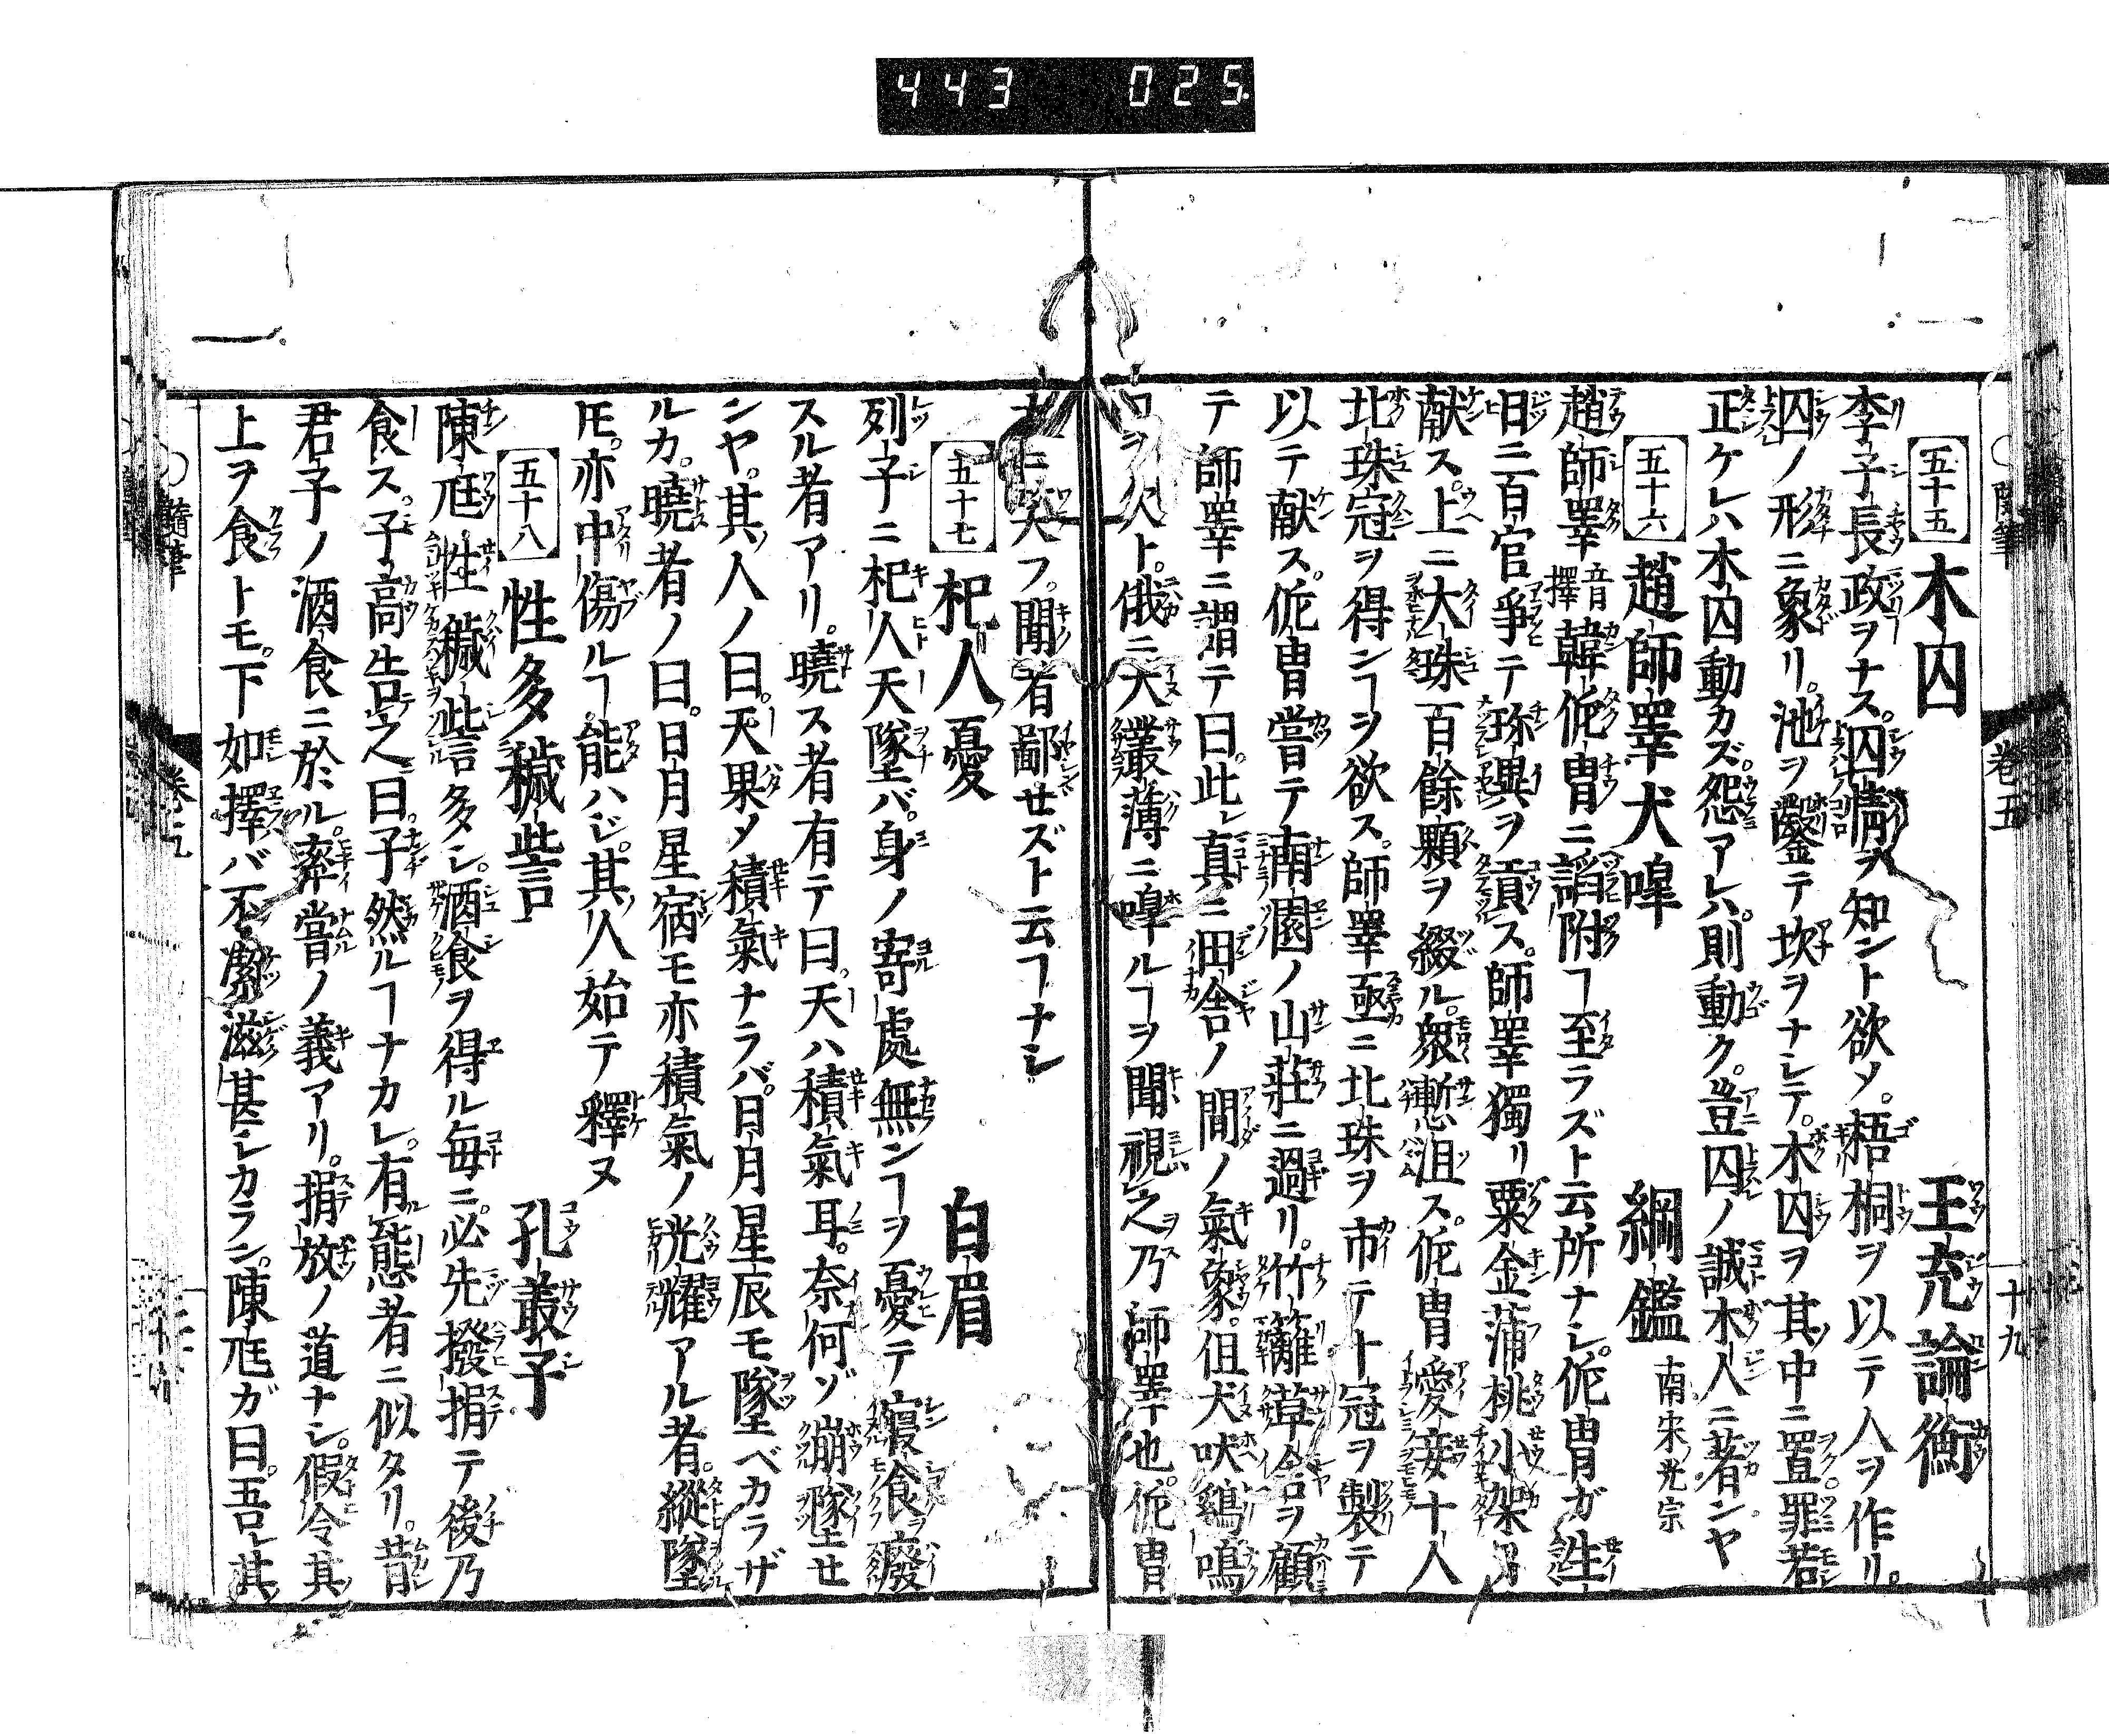 443 025
隨筆 卷五 十九
五十五 木囚 王充論衡
李子長政ヲナス。囚情ヲ知ント欲ソ。梧桐ヲ以テ人ヲ作リ。
囚ノ形ニ象リ。池ヲ鑿テ坎ヲナシテ。木囚ヲ其中ニ置。罪若
正ケレハ木囚動カズ。怨アレハ。則動ク。豈囚ノ誠木人ニ著ンヤ
五十六 趙師睪犬嘷 綱鑑 南宋光宗
趙師睪音擇韓侂冑ニ謟附ヿ至ラズト云所ナシ。侂冑ガ生
日ニ百官爭テ珍異ヲ貢ス。師睪獨リ粟金蒲桃小架
献ス。上ニ大珠百餘顆ヲ綴ル。衆慙沮ス。侂冑愛妾十人
北珠冠ヲ得ンヿヲ欲ス。師睪亟ニ北珠ヲ市テト冠ヲ製テ
以テ献ス。侂冑嘗テ南園ノ山莊ニ過リ。竹籬草舎ヲ顧
テ師睪ニ謂テ曰。此レ真ニ田舎ノ間ノ氣象。但犬吠鷄鳴
ヲ欠ト。俄ニ犬叢薄ニ嘷ルヿヲ聞視之乃師睪也。侂冑
大ニ笑フ。聞者鄙せズト云ヿナシ
五十七 杞人憂 白眉
列子ニ杞人天墜バ。身ノ寄處無ンヿヲ憂テ寢食ヲ廢
スル者アリ。曉ス者有テ曰。天ハ積氣耳。奈何ゾ崩墜せ
ンヤ。其人ノ曰。天果メ積氣ナラバ。日月星辰モ墜ベカラザ
ルカ。曉者ノ曰。日月星宿モ亦積氣ノ光耀アル者。縱墜
モ。亦中傷ルヿ能ハじ。其人始テ釋ヌ
五十八 性多穢訾 孔叢子
陳尫性穢訾多シ。酒食ヲ得ル毎ニ。必先撥捐テ後乃
食ス。子高告之曰。子然ルヿナカレ。有態者ニ似タリ。昔
君子ノ酒食ニ於ル。率嘗ノ義アリ。捐放ノ道ナシ。假令其
上ヲ食トモ。下如擇バ不潔滋甚シカラン。陳尫ガ曰。吾レ其
隨筆 卷五